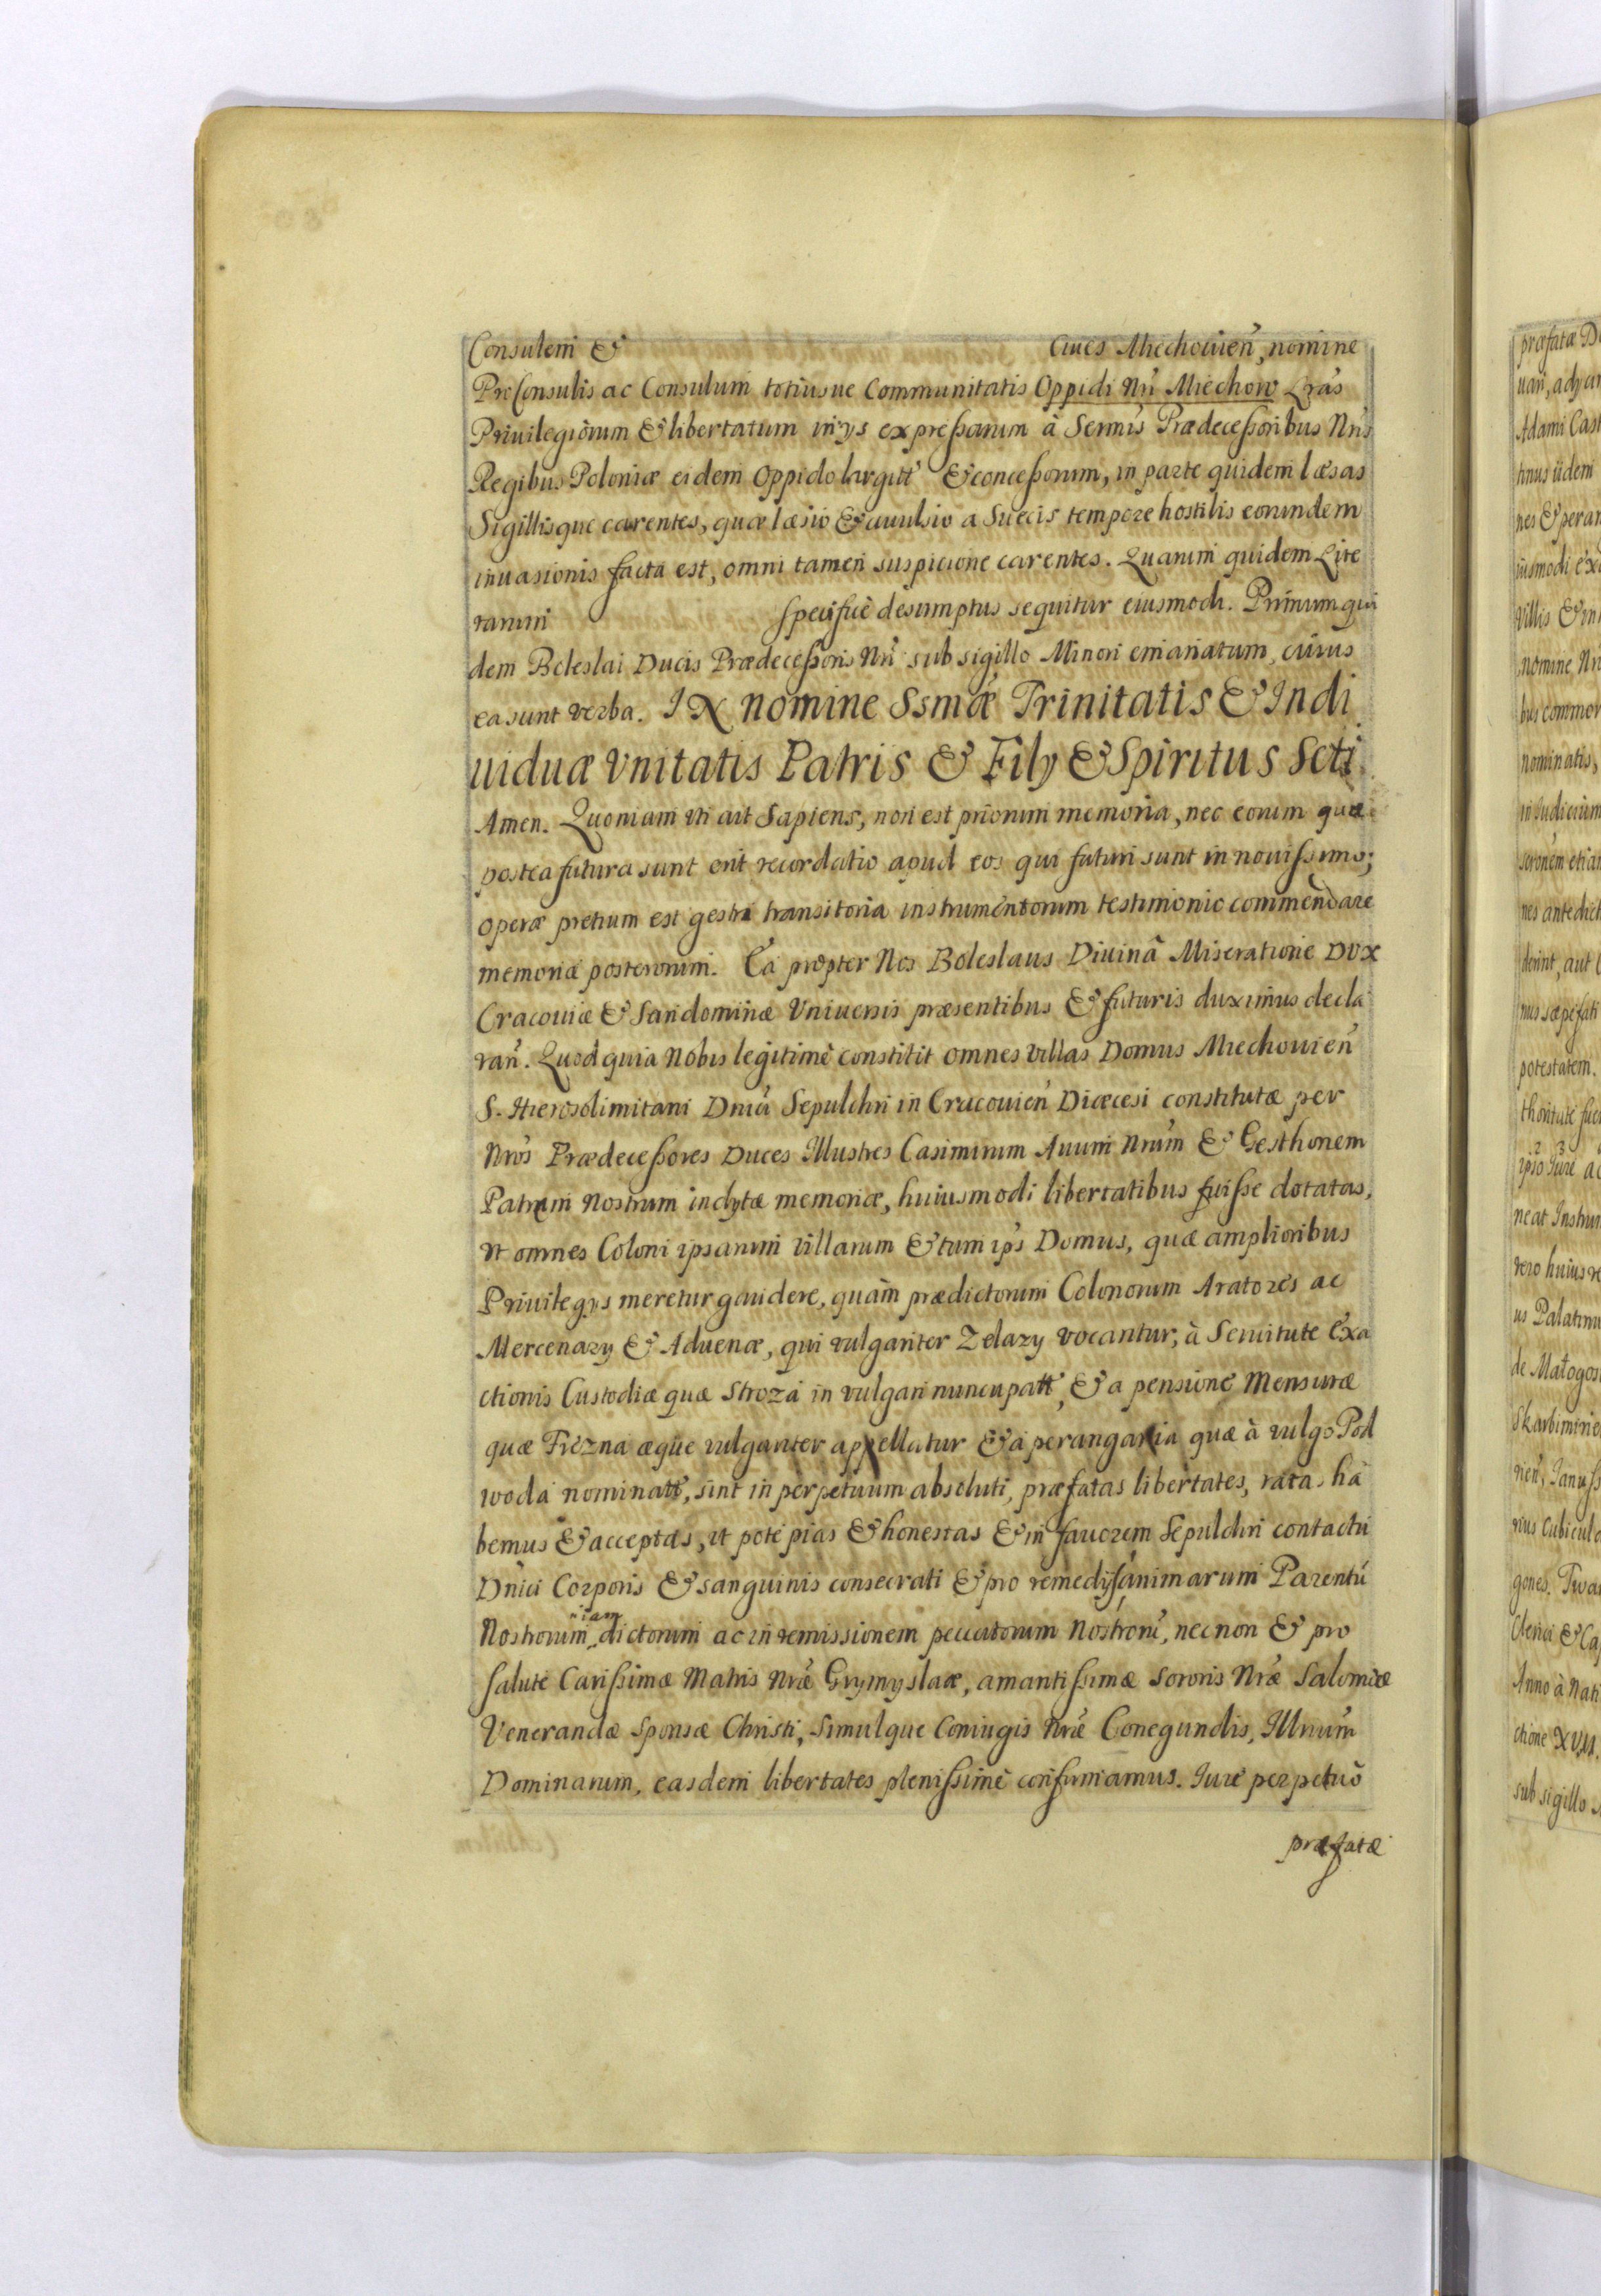 Consulem & Ciues Miechouien̄, nomine
ProConsulis ac Consulum totiusue Communitatis Oppidi Nr̄i Miechow Lrās
Priuilegiorum & libertatum in ijs expreßarum à Serm̄is Prædeceßoribus Nrīs
Regibus Poloniæ eidem Oppido largitt & conceßorum, in parte quidem læsas
Sigillisque carentes, quæ læsio & auulsio a Suecis tempore hostilis eorundem
inuasionis facta est, omni tamen suspicione carentes. Quarum quidem Lite
rarum specifice desumptus sequitur eiusmodi. Primum qui
dem Boleslai Ducis Prædeceßoris Nr̄i sub sigillo Minori emanatum, cuius
ea sunt verba. IN nomine Ssmæ Trinitatis & Indi
uiduæ Vnitatis Patris & Filÿ & Spiritus Scti
Amen. Quoniam vti ait Sapiens, non est priorum memoria, nec eorum quæ
postea futura sunt erit recordatio apud eos qui futuri sunt in nouißimo;
operæ pretium est gesta transitoria instrumentorum testimonio commendare
memoriæ posterorum. Ea propter Nos Boleslaus Diuinâ Miseratione Dux
Cracouiæ & Sandomiriæ Vniuersis præsentibus & futuris duximus decla
ran̄. Quod quia Nobis legitimè constitit omnes villas Domus Miechouien̄
S. Hierosolimitani Dnici Sepulchri in Cracouien̄ Diæcesi constitutæ per
Nrōs Prædeceßores Duces Illustres Casimirum Auum Nrūm & Lesthonem
Patrem Nostrum inclytæ memoriæ, huiusmodi libertatibus fuiße dotatas,
vt omnes Coloni ipsarum villarum & tum ips Domus, quæ amplioribus
Priuilegijs meretur gaudere, quàm prædictorum Colonorum Aratores ac
Mercenarÿ & Aduenæ, qui vulgariter Zelazy vocantur, à Seruitute exa
ctionis Custodiæ quæ Stroza in vulgari nuncupatt, & a pensione Mensuræ
quæ Frezna æque vulgariter appellatur & a perangaria quæ à vulgo Pod
woda nominatt, sint in perpetuum absoluti, præfatas libertates, ratas ha
bemus & acceptas, vt pote pias & honestas & in fauorem Sepulchri contactu
Dnici Corporis & sanguinis consecrati & pro remedijs animarum Parentū
Nostrorum iam dictorum ac in remissionem peccatorum Nostrorū, necnon & pro
salute Carißimæ Matris Nræ Grymyslaæ, amantißimæ Sororis Nræ Salomeæ
Venerandæ Sponsæ Christi, Simulque Coniugis Nræ Conegundis, Illrium
Dominarum, easdem libertates pleníßimè confirmamus. Iure perpetuò
præfatæ